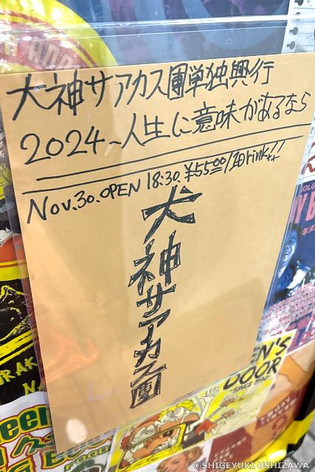 犬神サアカス團単独興行
2024~人生に意味があるなら
Nov.30. OPEN 18:30. ¥5500/1Drink!!
犬神サアカス團
EN'S
DOOR
©SHIGEYUKI USHIZAWA